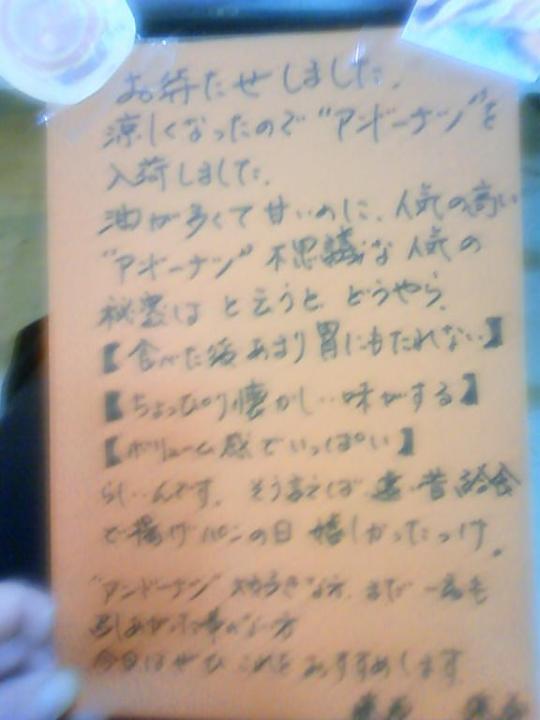 お待たせしました.
涼しくなったので"アンドーナツ"を
入荷しました.
油が多くて甘いのに、人気の高い
"アンドーナツ"不思議な人気の
秘密は と云うと どうやら、
【食べた後あまり胃にもたれない】
【ちょっぴり懐かしい味がする】
【ボリューム感でいっぱい】
らしいんです. そう言えば 遠い昔 給食
で揚げパンの日 嬉しかったっけ.
"アンドーナツ"大好きな方、まだ 一度も
召しあがった事がない方
今日はぜひ これを おすすめします